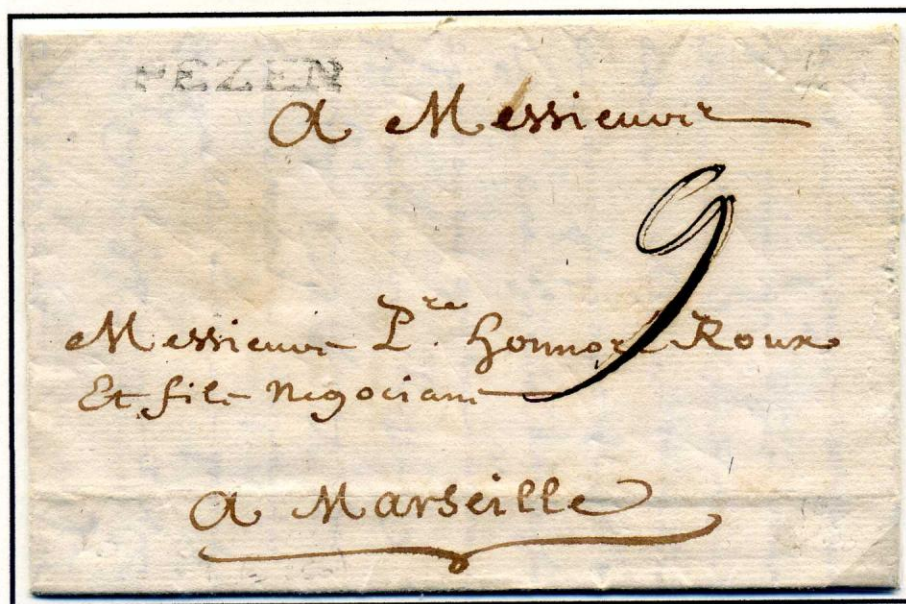 PEZEN
A Messieurs
9
Messieurs P.re Honnoré Roux
Et fils Negocians
A Marseille